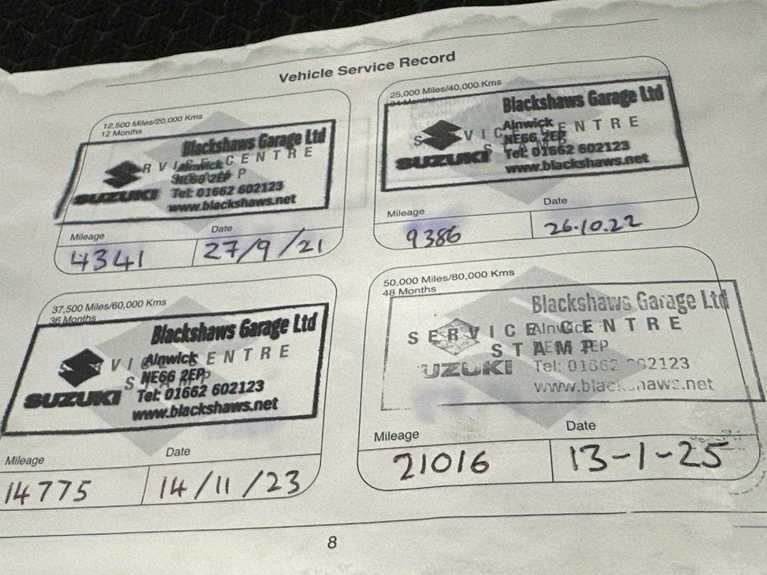 Vehicle Service Record
12,500 Miles/20,000 Kms
12 Months
Blackshaws Garage Ltd
Alnwick
NE66 2EP
SUZUKI
Tel: 01662 602123
www.blackshaws.net
Mileage
Date
4341
27/9/21
25,000 Miles/40,000 Kms
24 Months
Blackshaws Garage Ltd
Alnwick
NE66 2EP
SUZUKI
Tel: 01662 602123
www.blackshaws.net
Mileage
Date
9386
26.10.22
37,500 Miles/60,000 Kms
36 Months
Blackshaws Garage Ltd
Alnwick
NE66 2EP
SUZUKI
Tel: 01662 602123
www.blackshaws.net
Mileage
Date
14775
14/11/23
50,000 Miles/80,000 Kms
48 Months
Blackshaws Garage Ltd
SERVICE CENTRE
STAMP
UZUKI
Tel: 01662 602123
Mileage
Date
21016
13-1-25
8